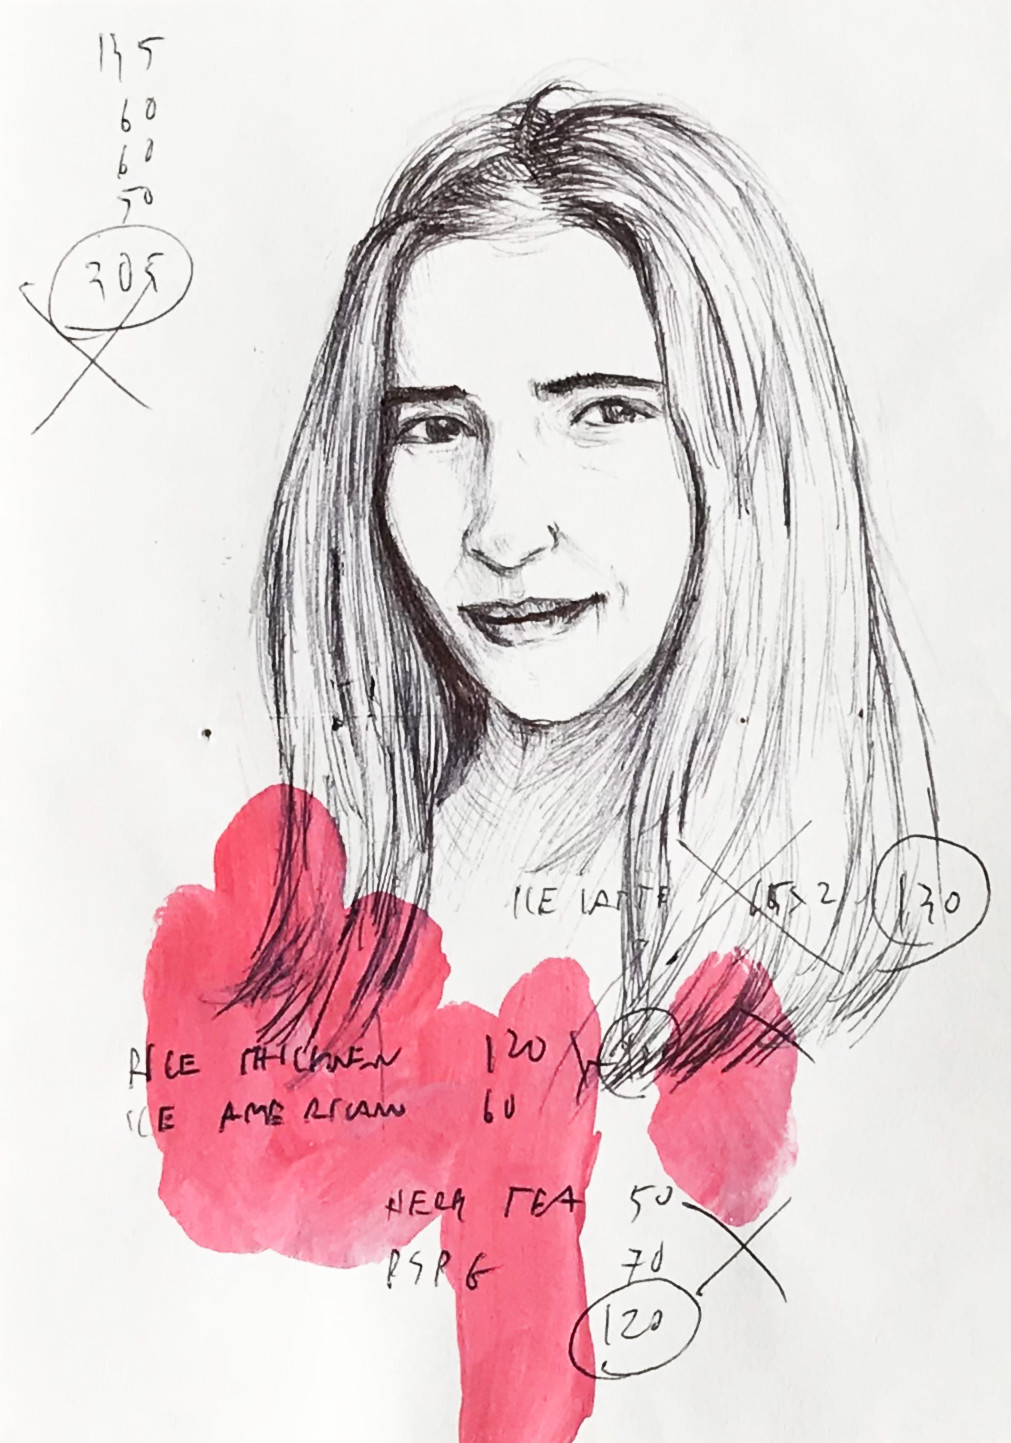 135
60
60
50
305
ICE LATTE 65×2 130
RICE THICKNEN 120
ICE AMERICANO 60
HERB TEA 50
70
120